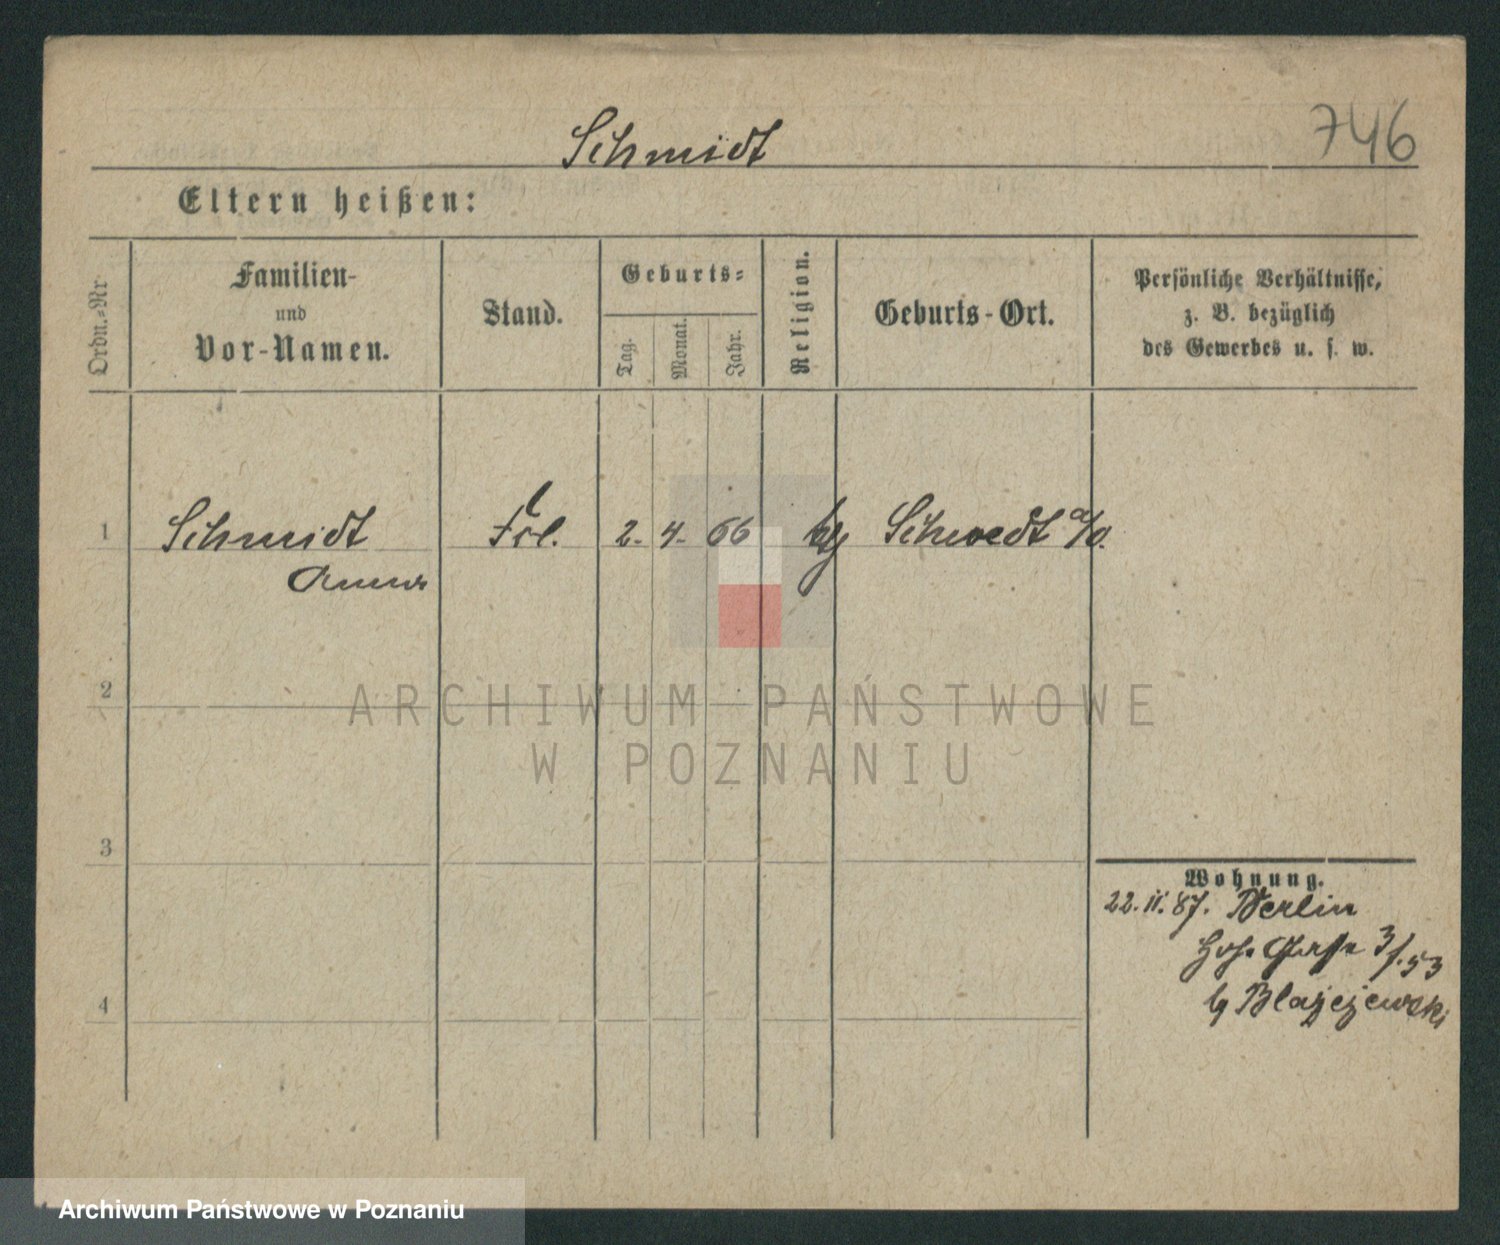 Schmidt
746
Eltern heißen:
Ordn.-Nr
Familien-
und
Vor-Namen.
Stand.
Geburts-
Tag.
Monat.
Jahr.
Religion.
Geburts-Ort.
Persönliche Verhältnisse,
z. B. bezüglich
des Gewerbes u. s. w.
1
Schmidt
Anna
Frl.
2. 4. 66
Schwedt a/O.
2
3
4
ARCHIWUM PAŃSTWOWE
W POZNANIU
Wohnung.
22. 11. 87. Berlin
3/53
Blazejewski
Archiwum Państwowe w Poznaniu